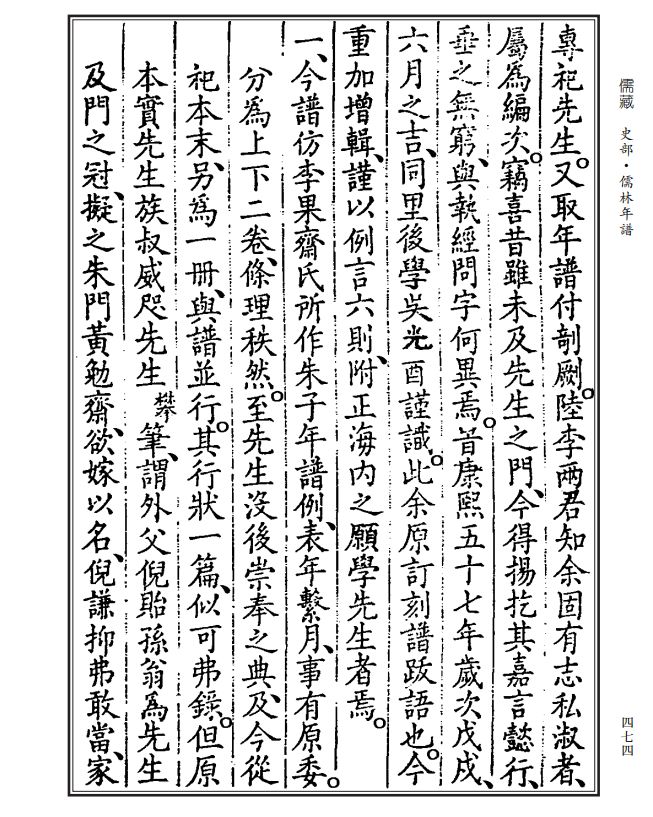 儒藏 史部·儒林年譜
專祀先生。又取年譜付剞劂。陸李兩君知余固有志私淑者、
屬為編次。竊喜昔雖未及先生之門、今得揚扢其嘉言懿行、
垂之無窮、與執經問字何異焉。昔康熙五十七年歲次戊戌、
六月之吉、同里後學吳光酉謹識。此余原訂刻譜跋語也。今
重加增輯、謹以例言六則、附正海內之願學先生者焉。
一、今譜仿李果齋氏所作朱子年譜例、表年繫月、事有原委。
分為上下二卷、條理秩然。至先生沒後崇奉之典、及今從
祀本末、另為一册、與譜並行。其行狀一篇、似可弗錄。但原
本實先生族叔威咫先生攀筆、謂外父倪貽孫翁為先生
及門之冠、擬之朱門黃勉齋、欲嫁以名、倪謙抑弗敢當、家
四七四